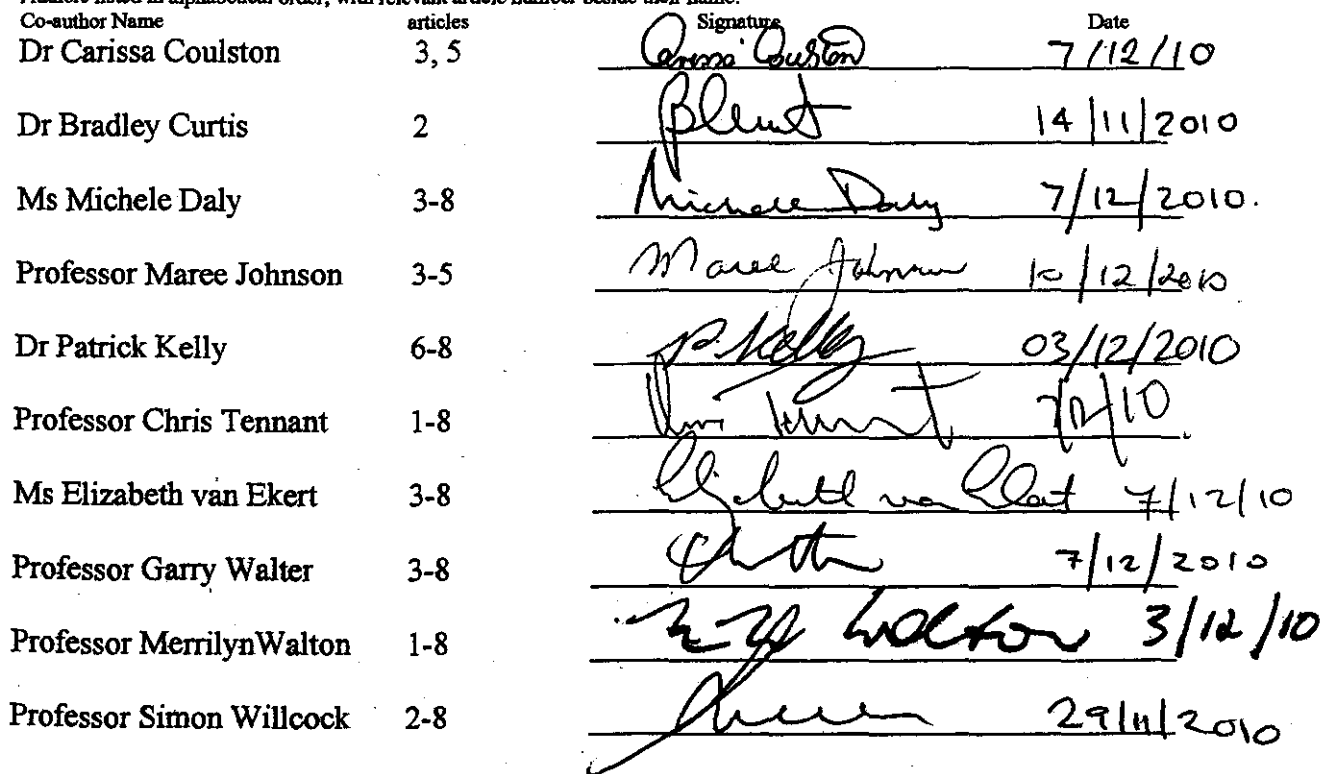 Co-author Name articles Signature Date
Dr Carissa Coulston 3, 5 Carissa Coulston 7/12/10
Dr Bradley Curtis 2 14/11/2010
Ms Michele Daly 3-8 Michele Daly 7/12/2010.
Professor Maree Johnson 3-5 Maree Johnson 10/12/2010
Dr Patrick Kelly 6-8 P. Kelly 03/12/2010
Professor Chris Tennant 1-8 7/12/10.
Ms Elizabeth van Ekert 3-8 Elizabeth van Ekert 7/12/10
Professor Garry Walter 3-8 7/12/2010
Professor MerrilynWalton 1-8 Walton 3/12/10
Professor Simon Willcock 2-8 29/11/2010